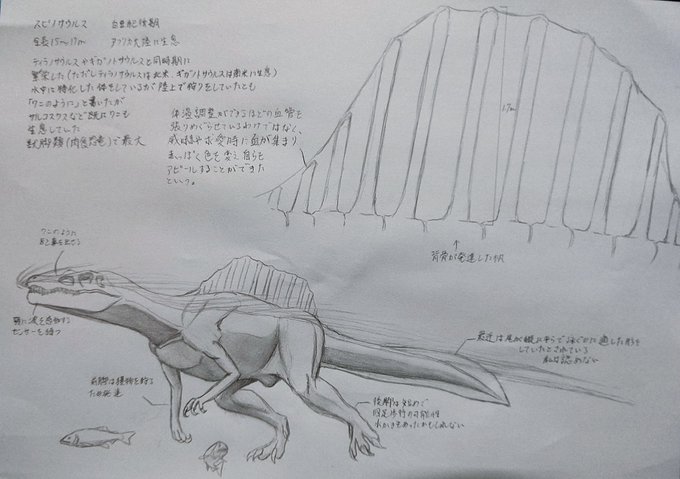 スピノサウルス 白亜紀後期
全長15〜17m アフリカ大陸に生息
ティラノサウルスやギガノトサウルスと同時期に
繁栄した(ただしティラノサウルスは北米、ギガノトサウルスは南米に生息)
水中に特化した体をしているが陸上で狩りをしていたとも
「ワニのように」と書いたが
サルコスクスなど既にワニも
生息していた
獣脚類(肉食恐竜)で最大
体温調整ができるほどの血管を
張りめぐらせているわけではなく、
求愛時に血が集まり
色を変え自らを
アピールすることができた
という。
1.7m
背骨が発達した帆
ワニのように
顎に波を感知する
センサーを持つ
前脚は獲物を狩る
ため発達
後脚は短めで
四足歩行の可能性
水かきもあったかもしれない
最近は尾が縦に平らで泳ぐのに適した形を
していたとされている
私は認めない